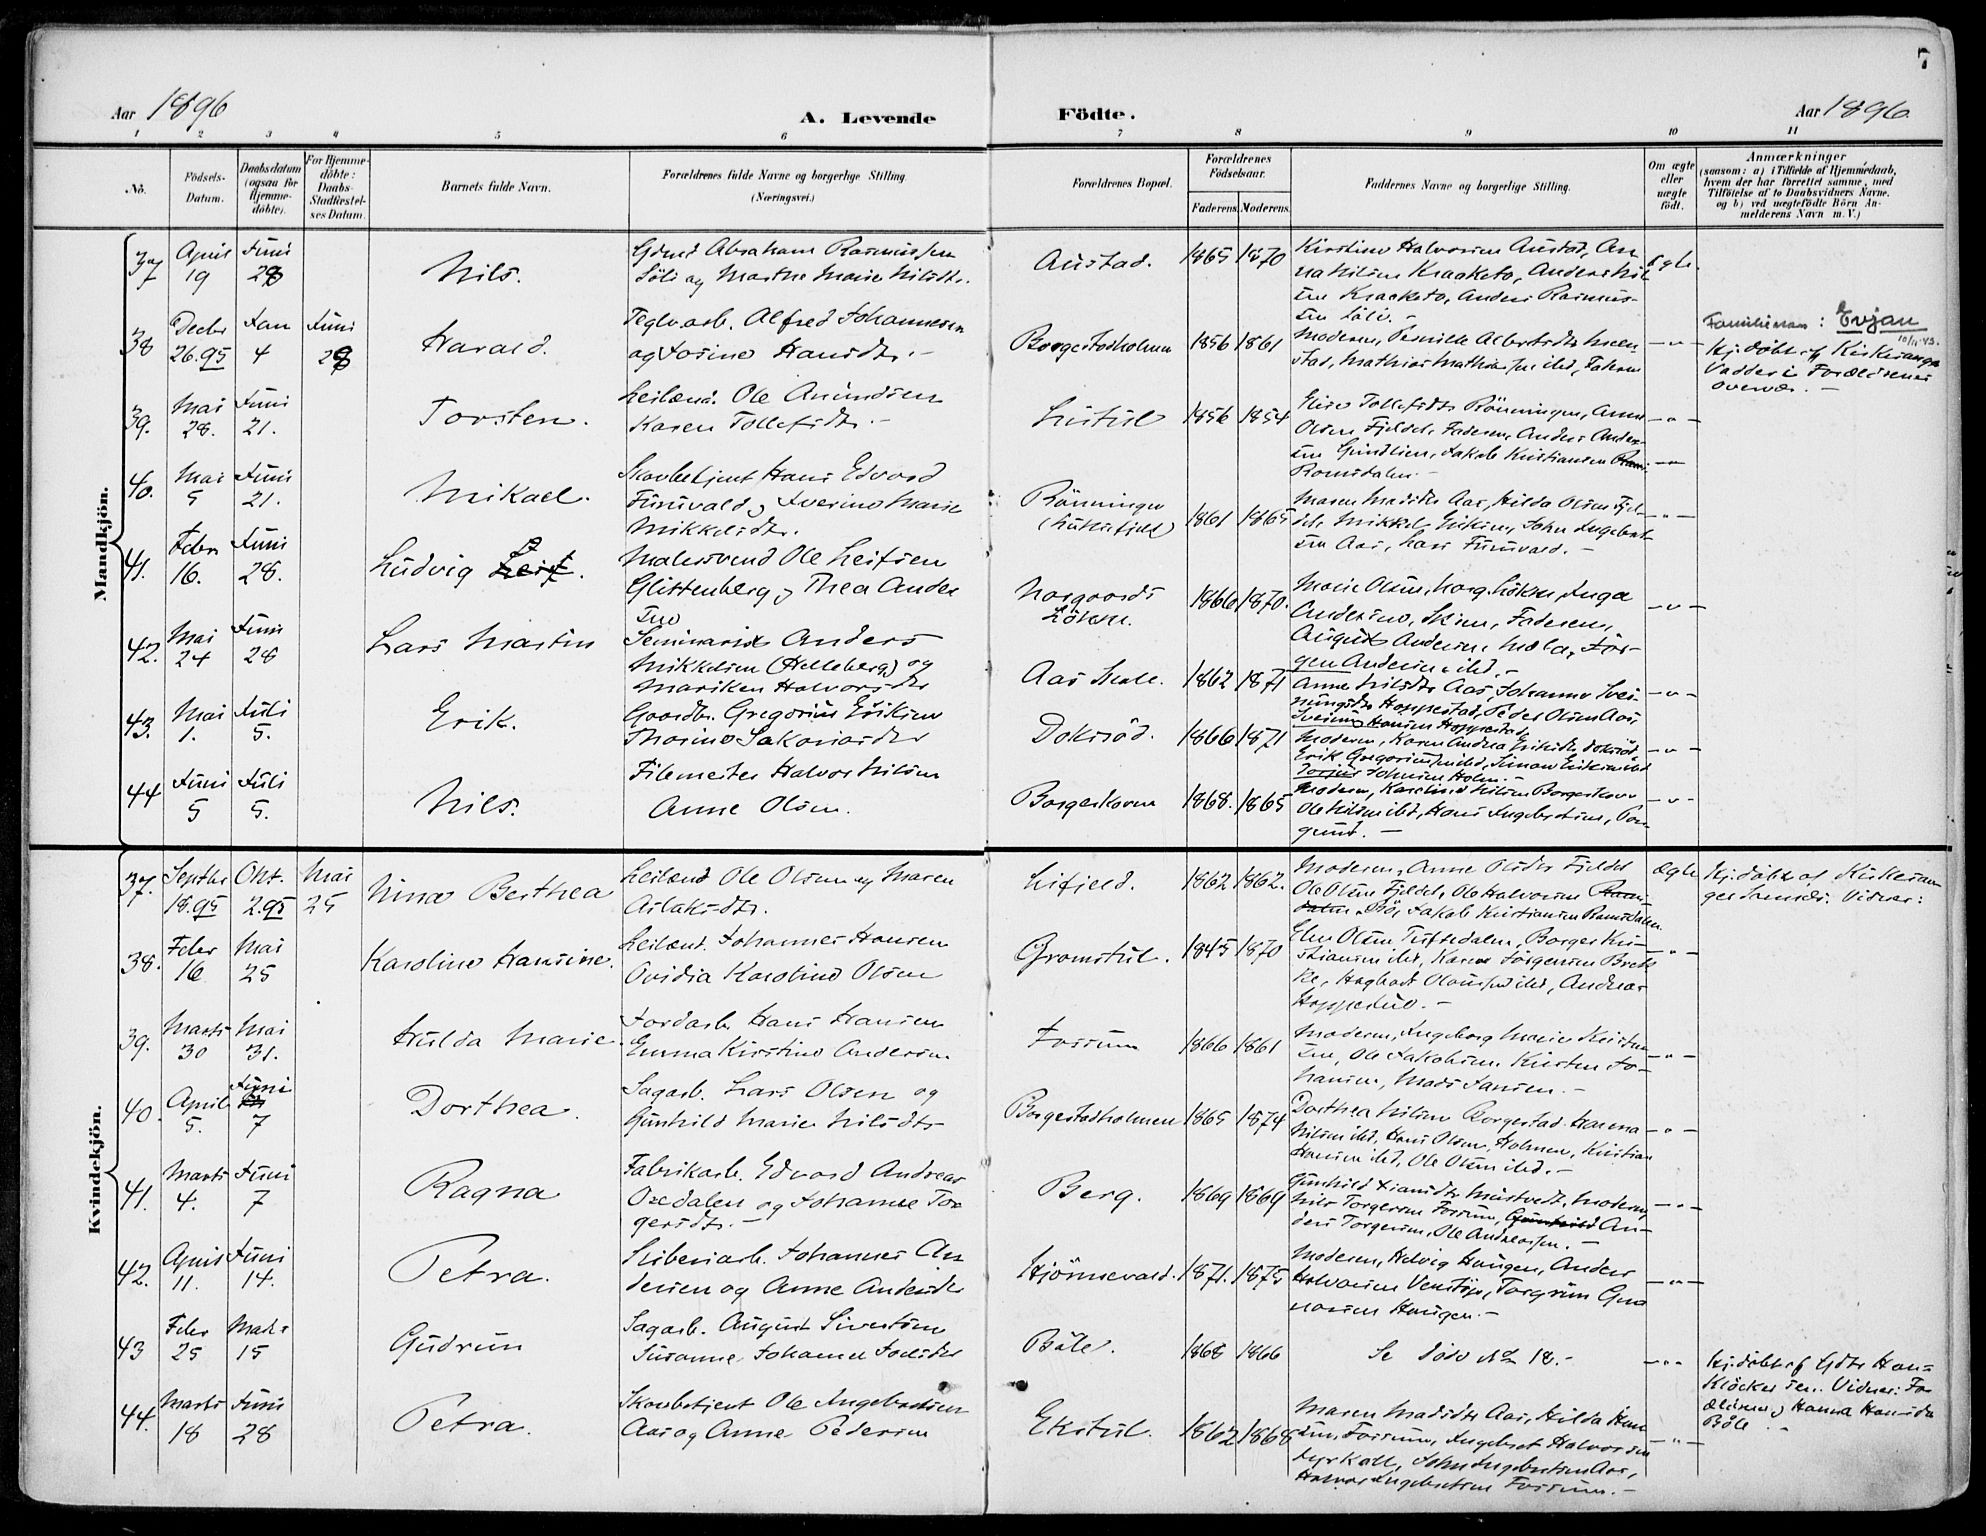 7
Aar 1896
A. Levende
Födte.
Aar 1896
1 2 3 4 5 6 7 8 9 10 11
No.
Födsels-Datum.
Daabsdatum (ogsaa for Hjemme-döbte).
For Hjemme-döbte: Daabs-Stadfæstel-ses Datum.
Barnets fulde Navn.
Forældrenes fulde Navne og borgerlige Stilling. (Næringsvei.)
Forældrenes Bopæl.
Forældrenes Födselsaar.
Faderens. Moderens.
Faddernes Navne og borgerlige Stilling.
Om ægte eller uægte födt.
Anmærkninger
(saasom: a) i Tilfælde af Hjemmedaab,
hvem der har forrettet samme, med
Tilföielse af to Daabsvidners Navne.
og b) ved uægtefödte Börn An-
melderens Navn m. V.)
Mandkjön.
37 April 19 Juni 28 Nils.
Gdmd Abraham Rasmussen
Löli og Marthe Marie Nilsdtr.
Austad. 1865 1870
Kirstine Halvorsen Austad, An-
na Nilsen Kraaketo, Anders Nil-
sen Kraaketo, Anders Rasmus-
sen Löli. -
ægte.
38 Decbr 26.95 Jan 4 Juni 28 Harald.
Teglv.arb. Alfred Johannesen
og Josine Hansdtr. -
Borgestadholmen 1856 1861
Moderen, Pernille Albertsdtr Meen-
stad, Mathias Mathiassen ibd, Johan
- " -
Familienavn: Evjan
Hj. döbt af Kirkesanger
Vadder i Forældrenes
overvær. -
39. Mai 28. Juni 21. Torsten.
Leilænd. Ole Amundsen
Karen Tollefsdtr. -
Lutul 1856 1854
Elise Tollefsdtr Rönningen, Anne
Olsen Fjeldet, Faderen, Anders Ander-
sen Grindlien, Jakob Kristiansen
Romsdalen. -
- " -
40. Mai 5 Juni 21. Mikael.
Skovbetjent Hans Edvard
Furuvald og Iverine Marie
Mikkelsdtr.
Rönningen 1861 1865
Maren Madsdtr Aas, Hilda Olsen Fjel-
det, Mikkel Eriksen, John Ingebret-
sen Aas, Lars Furuvald. -
- " -
41. Febr 16. Juni 28. Ludvig Leif.
Malersvend Ole Leifsen
Glittenberg og Thea Ander
sen
Norgaards Lökken. 1866 1870.
Marie Olsen, Norg. Lökken, Inga
Andersen, Skien, Faderen,
August Andersen, Mæla, Jör-
gen Andersen ibd. -
- " -
42. Mai 24 Juni 28 Lars Martin
Seminarist Anders
Mikkelsen (Helleberg) og
Mariken Halvorsdtr
Aas Skole. 1862 1871
Anne Nilsdtr Aas, Johanne Svei-
nungsdtr Hoppestad, Peder Olsen Aas,
Sveinung Hansen Hoppestad
- " -
43. Mai 1. Juli 5. Erik.
Gaardbr. Gregorius Eriksen
Thorine Sakariasdtr
Doksröd. 1866 1871
Moderen, Karen Andrea Eriksdtr, Doksröd
Erik Gregoriussen ibd, Simon Eriksen ibd
Johnsen Holm. -
- " -
44 Juni 5 Juli 5. Nils.
Filemester Halvor Nilsen
Anne Olsen.
Borgeskoven 1868. 1865
Moderen, Karoline Nilsen Borgeskov
Ole Nilsen ibd, Hans Ingebretsen, Pors-
grund. -
- " -
Kvindekjön.
37. Septbr 18.95 Okt. 2.95 Mai 25 Nina Berthea
Leilænd Ole Olsen og Maren
Aslaksdtr.
Lifjeld. 1862 1862.
Moderen, Anne Olsdtr Fjeldet
Ole Olsen Fjeldet, Ole Halvorsen
Bö, Jakob Kristiansen Romsdalen.
Ægte
Hj. döbt af Kirkesan-
ger. Vidner:
38. Febr 16 Mai 25 Karoline Hansine.
Leilænd. Johannes Hansen
Ovidia Karoline Olsen
Gromstul. 1845 1870
Elen Olsen Tuftedalen, Borger Kri-
stiansen ibd, Karen Jörgensen Brek-
ke, Hagbart Olaussen ibd, Andreas
Hoppestul. -
- " -
39. Marts 30 Mai 31. Hulda Marie
Jordarb. Hans Hansen
Emma Kirstine Andersen
Fossum 1866 1861
Moderen, Ingeborg Marie Kristen-
sen, Ole Jakobsen, Kirsten Jo-
hansen, Mads Jansen. -
- " -
40. April 5. Juni 7 Dorthea.
Sagarb. Lars Olsen og
Gunhild Marie Nilsdtr
Borgestadholmen 1865 1874
Dorthea Nilsen Borgestad, Hanna
Nilsen ibd, Hans Olsen, Holmen, Kristian
Hansen ibd, Ole Olsen ibd. -
- " -
41. Marts 4. Juni 7 Ragna
Fabrikarb. Edvard Andreas
Oredalen og Johanne Tor-
gersdtr. -
Berg. 1869 1869
Gunhild Hansdtr Mustvedt, Moderen,
Nils Torgersen Fossum, An-
ders Torgersen, Ole Andreassen. -
- " -
42. April 11. Juni 14. Petra.
Sliberiarb. Johannes An-
dersen og Anne Andersdtr
Hjörnevald. 1871. 1875
Moderen, Helvig Haugen, Anders
Halvorsen Venstöp, Torgrim Gun-
narsen Haugen. -
- " -
43 Febr 25 Marts 15 Gudrun
Sagarb. August Sivertsen
Susanne Johanne Joelsdtr
Böle. 1868 1866
Se döde No 18. -
- " -
Hj. döbt af Jdmr Han-
Klöcker sen. Vidner: For-
ældrene og Hanna Hansdtr
Böle. -
44. Marts 18 Juni 28 Petra.
Skovbetjent Ole Ingebretsen
Aas og Anne Pedersen
Ekstul. 1862 1868
Maren Madsdtr Aas, Hilda Han-
sen, Fossum, Ingebret Halvorsen
Dyrkoll, John Ingebretsen Aas,
Halvor Ingebretsen Fossum. -
- " -